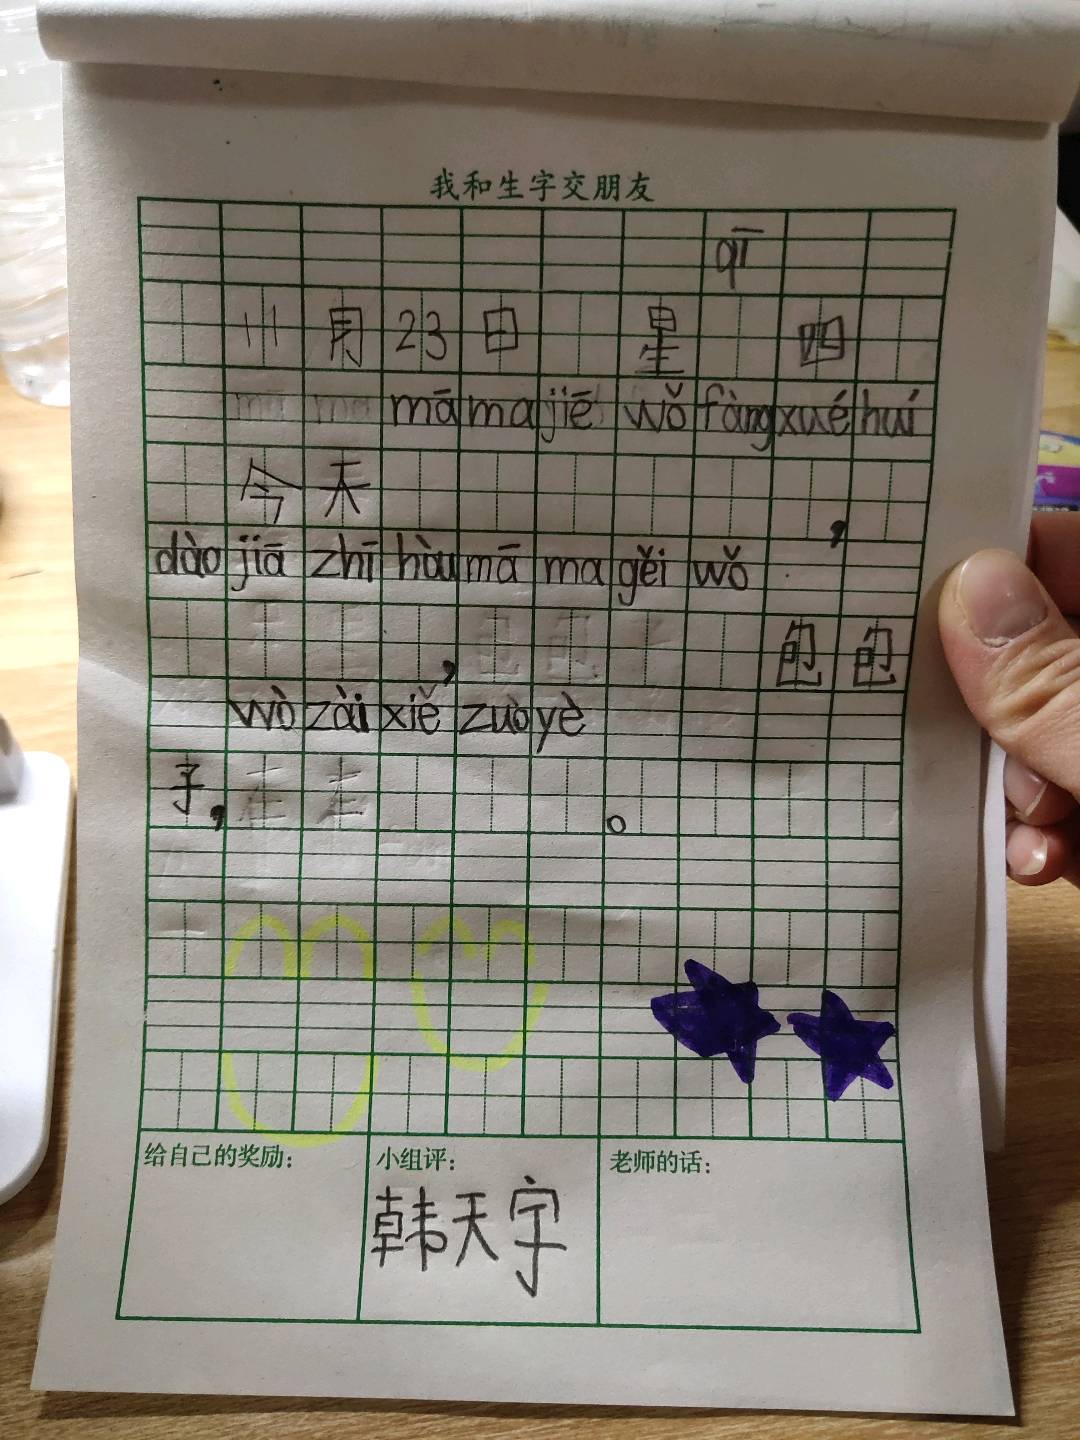 我和生字交朋友
qī
11月23日 星 四
mā ma jiē wǒ fàng xué huí
今天 ，
dào jiā zhī hòu mā ma gěi wǒ
， 包包
wò zài xiě zuò yè
子， 。
给自己的奖励：
小组评：
韩天宇
老师的话：